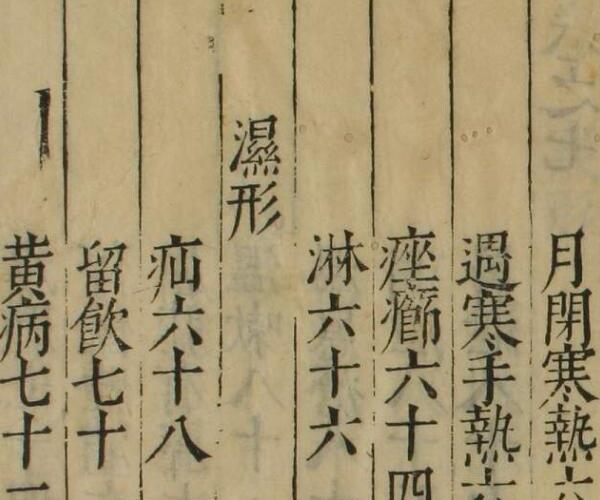 月閉寒熱六
遇寒手熱六
痤癤六十四
淋六十六
濕形
疝六十八
留飲七十
黃病七十一